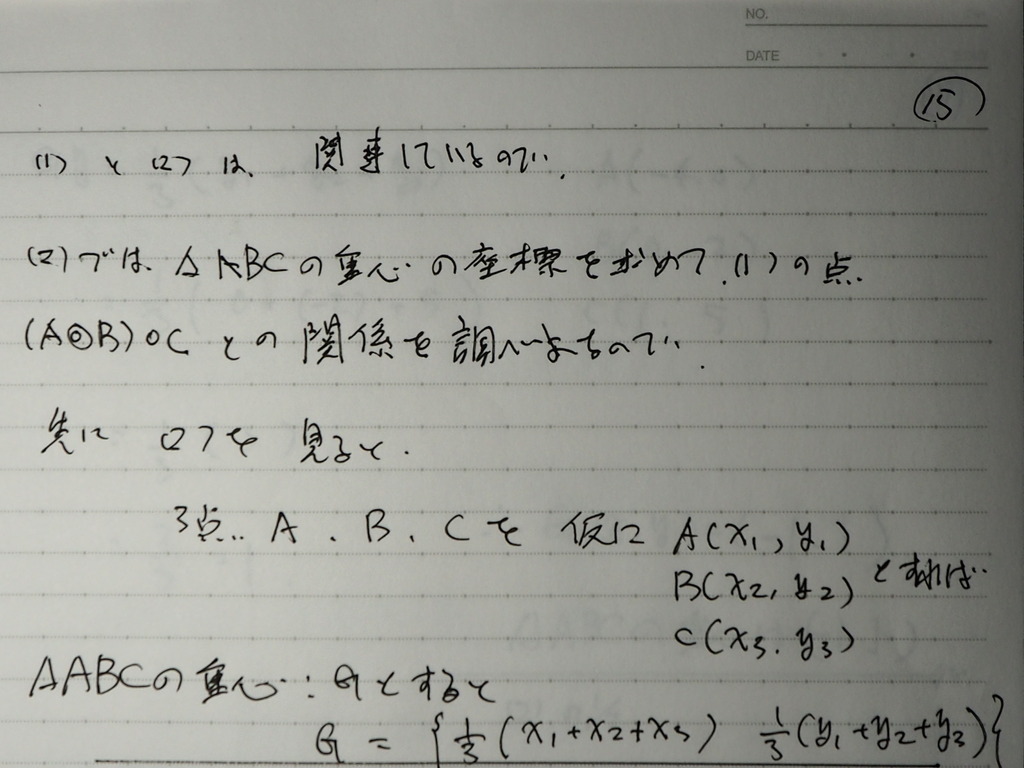 NO.
DATE
15
(1) と (2) は、関連しているので、
(2)では、△ABCの重心の座標を求めて、(1)の点、
(A◎B)○C との関係を調べよるので、
先に (2)を 見ると、
3点、A、B、Cを 仮に A(x1, y1)
B(x2, y2) とすれば
C(x3, y3)
△ABCの重心:Gとすると
G = {1/3(x1+x2+x3) 1/3(y1+y2+y3)}